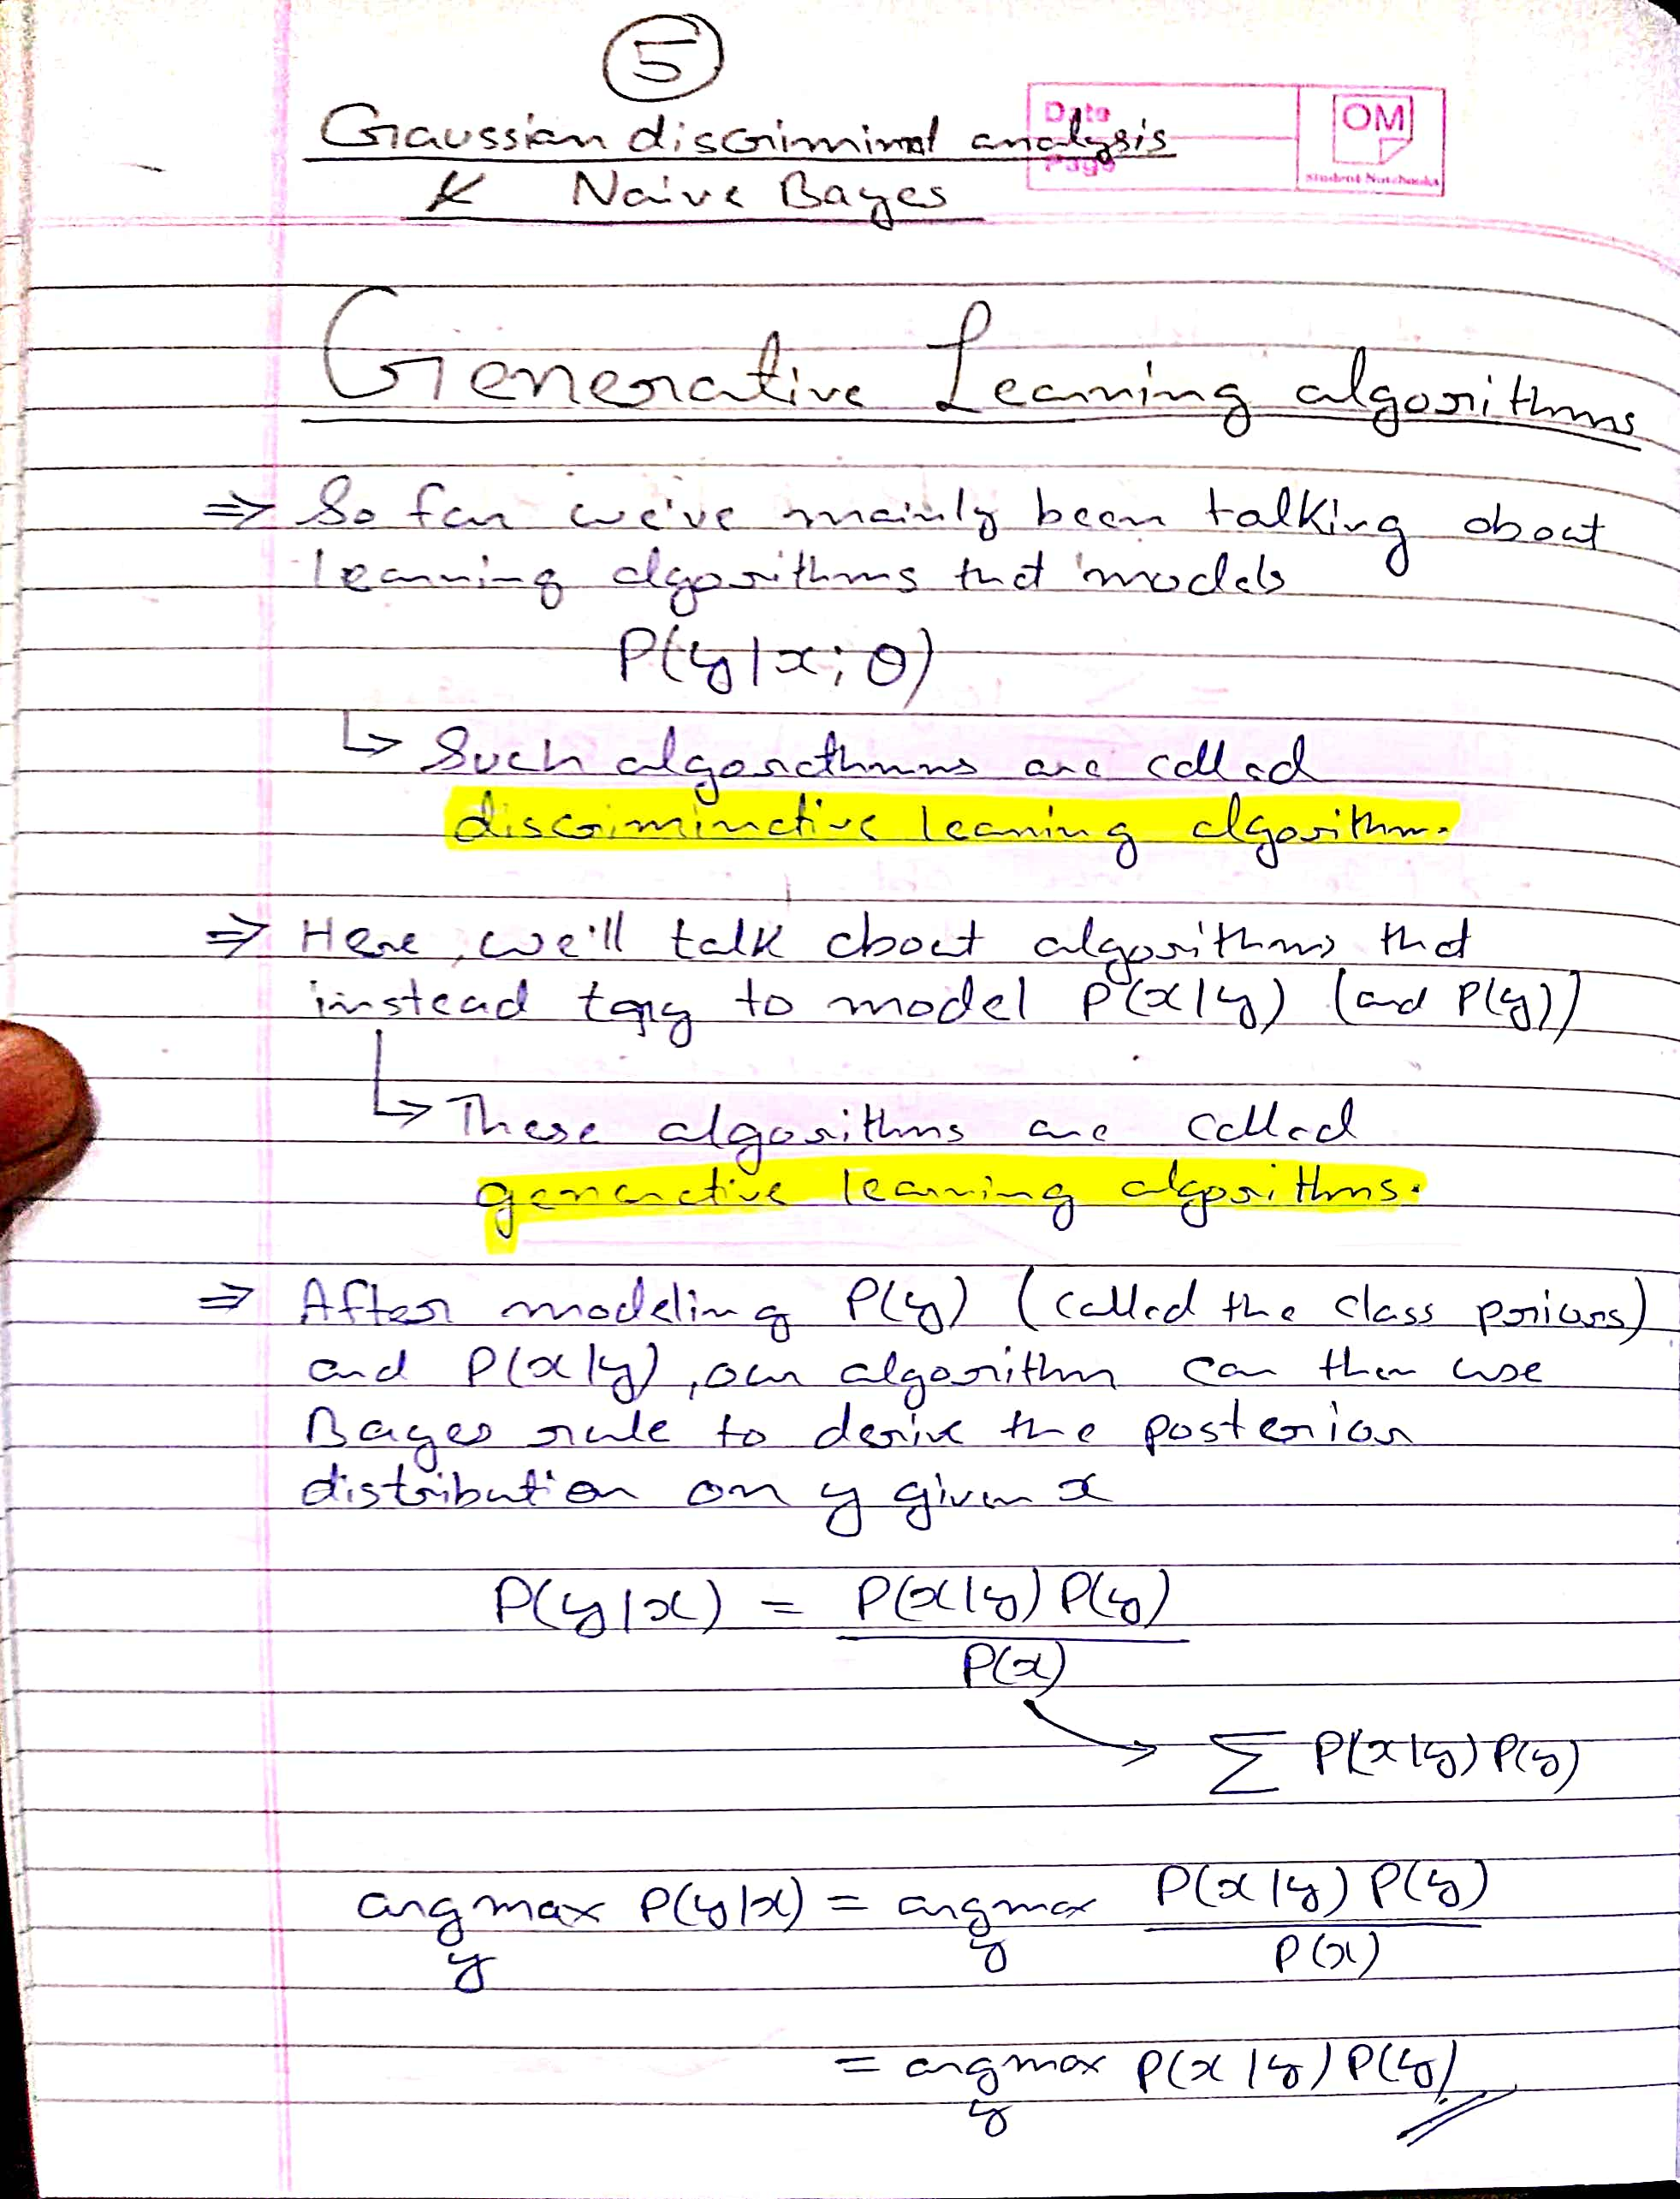 5
Gaussian discriminant analysis
& Naive Bayes
Date
Page
OM
Student Notebooks
Generative Learning algorithms
⇒ So far we've mainly been talking about
learning algorithms that models
P(y|x; θ)
↳ Such algorithms are called
discriminative learning algorithm.
⇒ Here, we'll talk about algorithms that
instead try to model P(x|y) (and P(y))
↳ These algorithms are called
generative learning algorithms.
⇒ After modeling P(y) (called the class priors)
and P(x|y), our algorithm can then use
Bayes rule to derive the posterior
distribution on y given x
P(y|x) = P(x|y) P(y)
P(x)
→ Σ P(x|y) P(y)
argmax P(y|x) = argmax P(x|y) P(y)
y y P(x)
= argmax P(x|y) P(y)
y